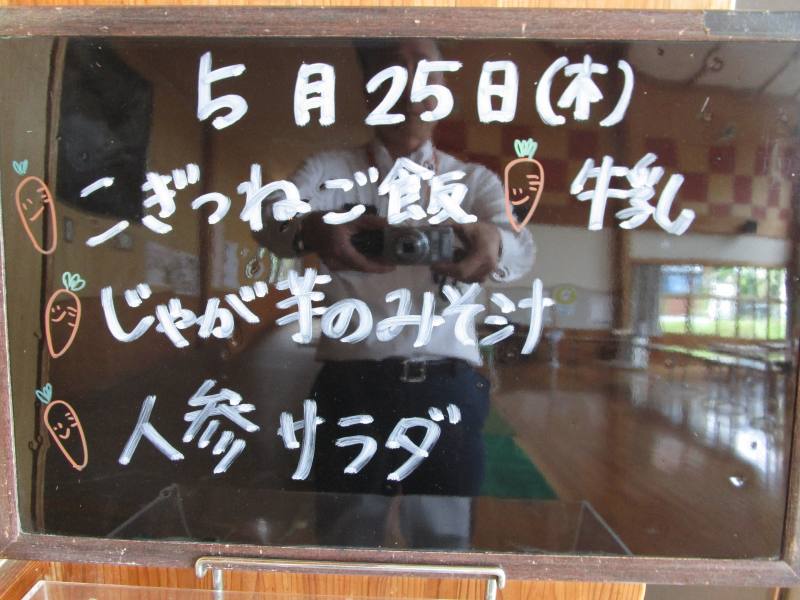 5月25日(木)
こぎつねご飯 牛乳
じゃが芋のみそ汁
人参サラダ